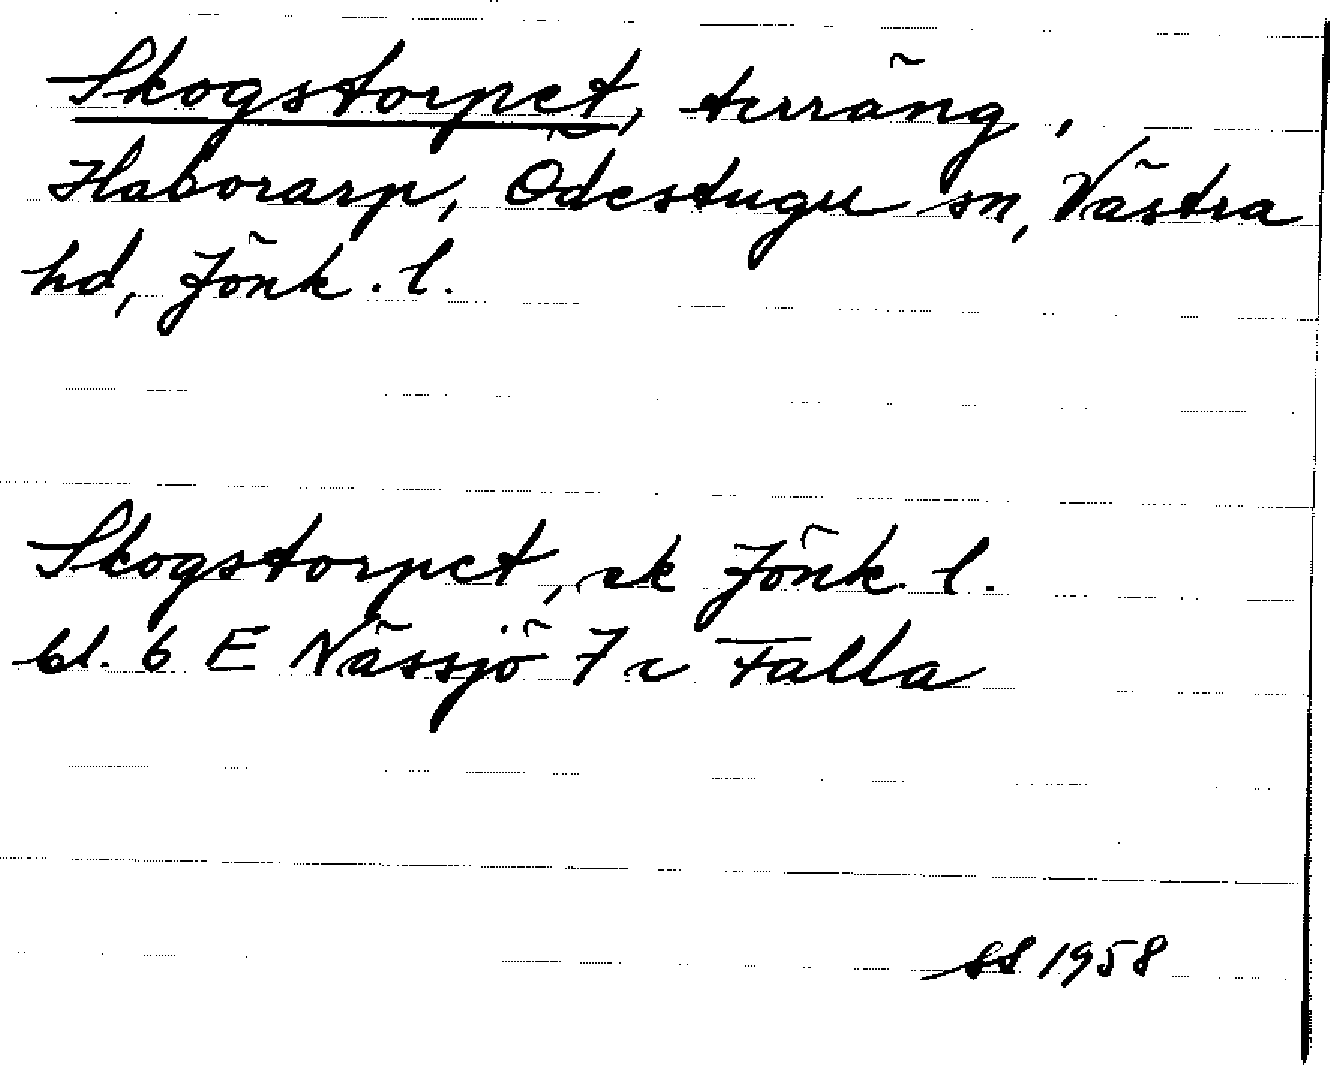 Skogstorpet, terräng,
Haborarp, Ödestugu sn, Västra
hd, Jönk. l.
Skogstorpet, ek Jönk. l.
bl. 6 E Nässjö 7 c Falla
SS 1958